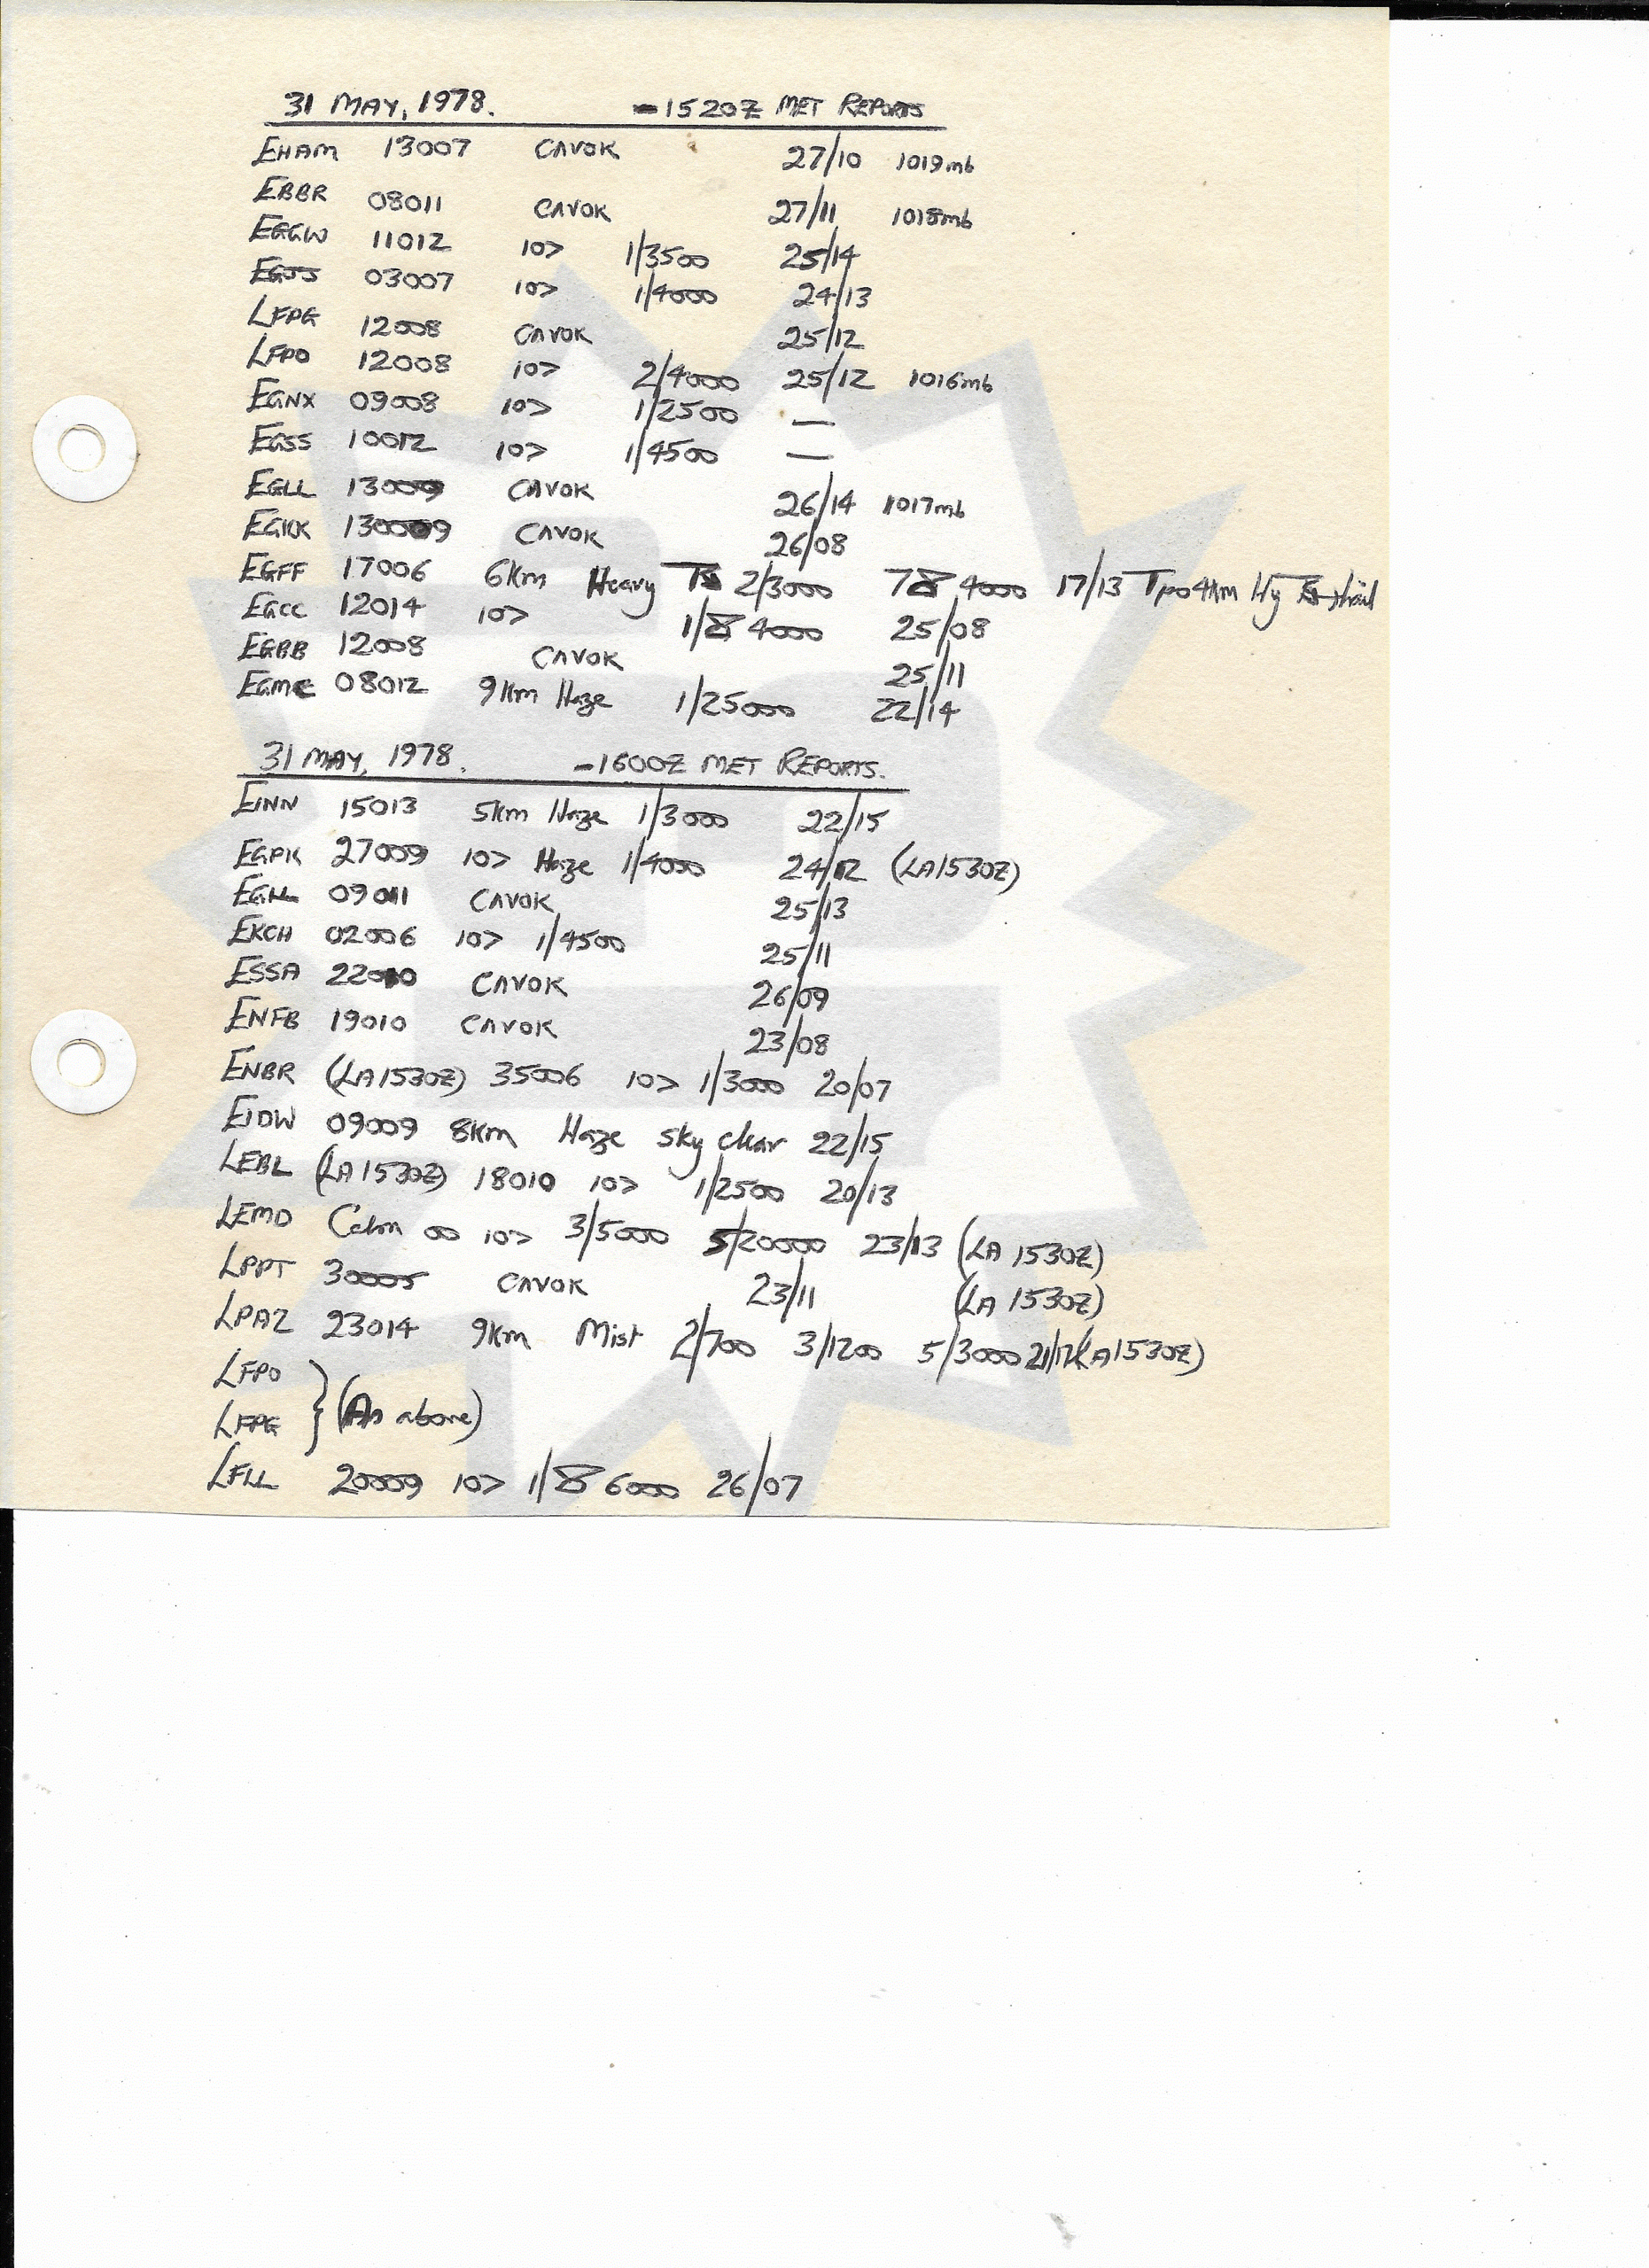 31 MAY, 1978. -1520Z MET REPORTS
EHAM 13007 CAVOK 27/10 1019mb
EBBR 08011 CAVOK 27/11 1018mb
EGGW 11012 10> 1/3500 25/14
EGJJ 03007 10> 1/4000 24/13
LFPG 12008 CAVOK 25/12
LFPO 12008 10> 2/4000 25/12 1016mb
EGNX 09008 10> 1/2500 —
EGSS 10012 10> 1/4500 —
EGLL 13009 CAVOK 26/14 1017mb
EGKK 13009 CAVOK 26/08
EGFF 17006 6km Heavy TS 2/3000 7/8 4000 17/13 Tpo 4km Hy hail
EGCC 12014 10> 1/8 4000 25/08
EGBB 12008 CAVOK 25/11
EGMC 08012 9km Haze 1/25000 22/14
31 MAY, 1978. -1600Z MET REPORTS.
EINN 15013 5km Haze 1/3000 22/15
EGPK 27009 10> Haze 1/4000 24/12 (LA1530Z)
EGLL 09011 CAVOK 25/13
EKCH 02006 10> 1/4500 25/11
ESSA 22010 CAVOK 26/09
ENFB 19010 CAVOK 23/08
ENBR (LA1530Z) 35006 10> 1/3000 20/07
EIDW 09009 8km Haze sky clear 22/15
LEBL (LA1530Z) 18010 10> 1/2500 20/13
LEMD Calm 00 10> 3/5000 5/20000 23/13 (LA 1530Z)
LPPT 30005 CAVOK 23/11 (LA 1530Z)
LPAZ 23014 9km Mist 2/700 3/1200 5/3000 21/17 (LA1530Z)
LFPO
LFPG } (As above)
LFLL 20009 10> 1/8 6000 26/07